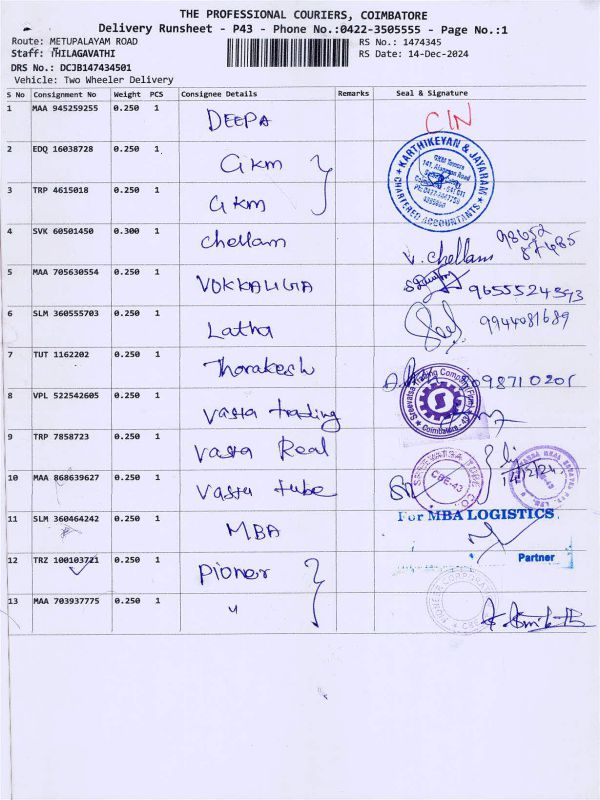 THE PROFESSIONAL COURIERS, COIMBATORE
Delivery Runsheet - P43 - Phone No.:0422-3505555 - Page No.:1
Route: METUPALAYAM ROAD
RS No.: 1474345
Staff: THILAGAVATHI
RS Date: 14-Dec-2024
DRS No.: DCJB147434501
Vehicle: Two Wheeler Delivery
S No Consignment No Weight PCS Consignee Details Remarks Seal & Signature
1 MAA 945259255 0.250 1 DEEPA CIN
2 EDQ 16038728 0.250 1 GKM
KARTHIKEYAN & JAYARAM
CHARTERED ACCOUNTANTS
GKM Towers
3 TRP 4615018 0.250 1 GKM
4 SVK 60501450 0.300 1 chellam V. chellam 98652
5 MAA 705630554 0.250 1 VOKKALIGA
6 SLM 360555703 0.250 1 Latha 9944081689
7 TUT 1162202 0.250 1 Thorakesh
8 VPL 522542605 0.250 1 vasta trading
Coimbatore
9 TRP 7858723 0.250 1 vasta Real
10 MAA 868639627 0.250 1 vasta tube
CBE-43
11 SLM 360464242 0.250 1 MBA
For MBA LOGISTICS
Partner
12 TRZ 100103721 0.250 1 pioner
13 MAA 703937775 0.250 1 "